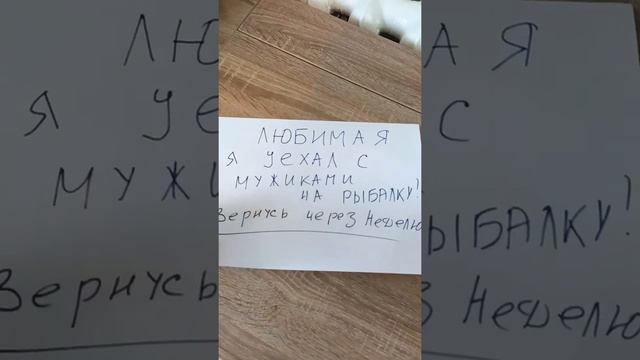 ЛЮБИМАЯ
Я УЕХАЛ С
МУЖИКАМИ
НА РЫБАЛКУ!
Вернусь через Неделю